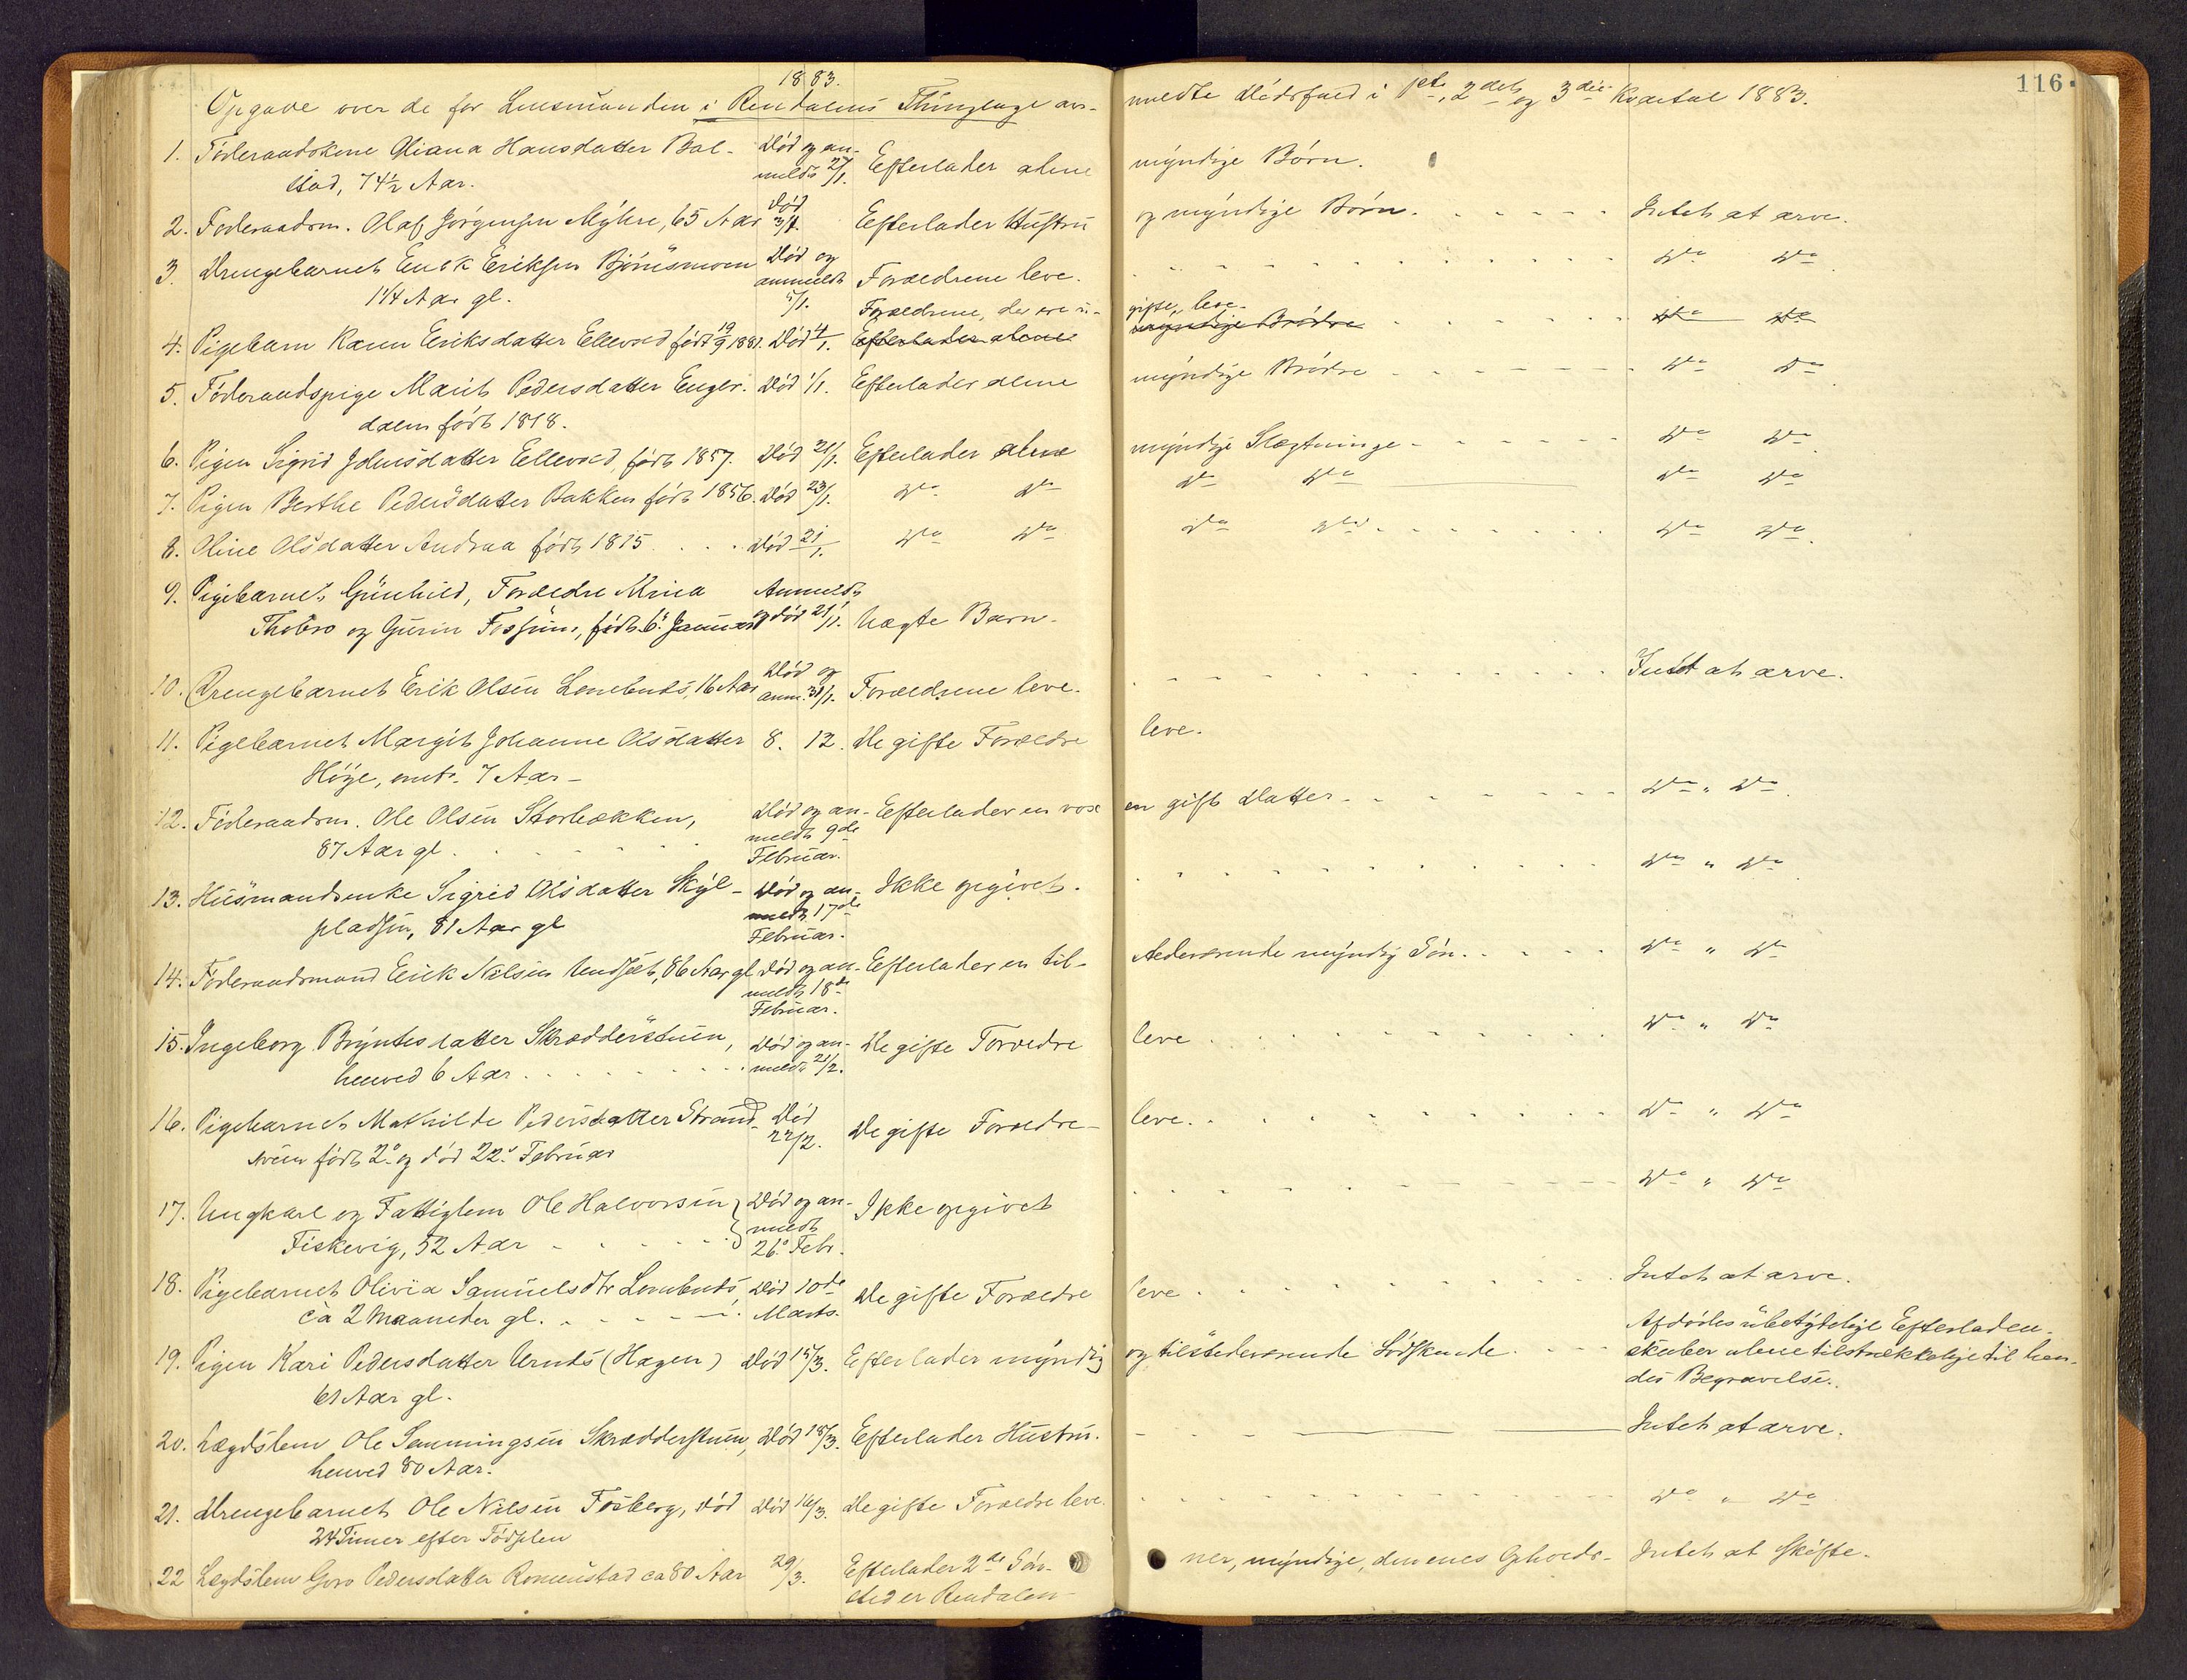 116.
1883.
Opgave over de for Lensmanden i Rendalens Thinglage an- meldte Dødsfald i 1ste, 2det og 3die Kvartal 1883.
1. Føderaadskone Oliana Hansdatter Bol- Død og an- Efterlader alene myndige Børn.
stad, 74½ Aar. meldt 27/1.
2. Føderaadsm. Olaf Jørgensen Myhre, 65 Aar Død 3/1. Efterlader Hustru og myndige Børn. Intet at arve.
3. Drengebarnet Erik Eriksen Bjørnsmoen Død og anmeldt 5/1. Forældrene leve. do do
1 1/4 Aar gl.
Forældrene, der ere u- gifte, leve.
4. Pigebarn Karen Eriksdatter Ellevold født 19/9 1881. Død 4/1. Efterlader alene myndige Brødre do do
5. Føderaadspige Marit Pedersdatter Enger- Død 1/1. Efterlader alene myndige Brødre do do
dalen født 1818.
6. Pigen Sigrid Johnsdatter Ellevold, født 1857. Død 21/1. Efterlader alene myndige Slægtninge do do
7. Pigen Berthe Pedersdatter Bakken født 1856. Død 23/1. do do do do do do
8. Oline Olsdatter Andraa født 1815 Død 21/1. do do do do do do
9. Pigebarnet Gunhild, Forældre Anmeldt
og Gurin Fossum, født 6. Januar og død 21/1. Uægte Barn.
10. Drengebarnet Erik Olsen Lombnds, 16 Aar Død og anm. 31/1. Forældrene leve. Intet at arve.
11. Pigebarnet Margit Johanne Olsdatter 8. 12. De gifte Forældre leve.
Høye, omtr. 7 Aar
12. Føderaadsm. Ole Olsen Storbækken, Død og an- Efterlader en vox en gift Datter. do " do
87 Aar gl. meldt 9de Februar.
13. Husmandsenke Sigrid Olsdatter Skyl- Død og an- Ikke opgivet. do " do
pladsen, 81 Aar gl meldt 17de Februar.
14. Føderaadsmand Erik Nilsen Undset, 86 Aar gl Død og an- Efterlader en til- stedeværende myndig Søn. do " do
meldt 18de Februar.
15. Ingeborg Bryntesdatter Skrædderstuen, Død og an- De gifte Forældre leve do " do
henved 6 Aar meldt 21/2.
16. Pigebarnet Mathilde Pedersdatter Strand- Død 22/2. De gifte Forældre leve. do " do
født 2. og død 22. Februar
17. Ungkarl og Fattiglem Ole Halvorsen Død og an- Ikke opgivet do " do
Fiskevig, 52 Aar meldt 26. Febr.
18. Pigebarnet Olivia Samuelsdtr Lombnds, Død 10de De gifte Forældre leve. Intet at arve.
ca 2 Maaneder gl. Marts.
19. Pigen Kari Pedersdatter Unds (Hagen) Død 15/3. Efterlader myndig og tilstedeværende Sødskende. Afdødes ubetydelige Efterladen-
skaber alene tilstrækkelige til hen-
des Begravelse.
61 Aar gl.
20. Lægdslem Ole Semmingsen Skrædderstuen, Død 18/3. Efterlader Hustru. Intet at arve.
henved 80 Aar.
21. Drengebarnet Ole Nilsen Fosberg, død Død 16/3. De gifte Forældre leve. do " do
24 Timer efter Fødselen
22 Lægdslem Goro Pedersdatter Romenstad ca 80 Aar 29/3. Efterlader 2de Søn- ner, myndige, den enes Opholds- Intet at skifte.
sted er Rendalen